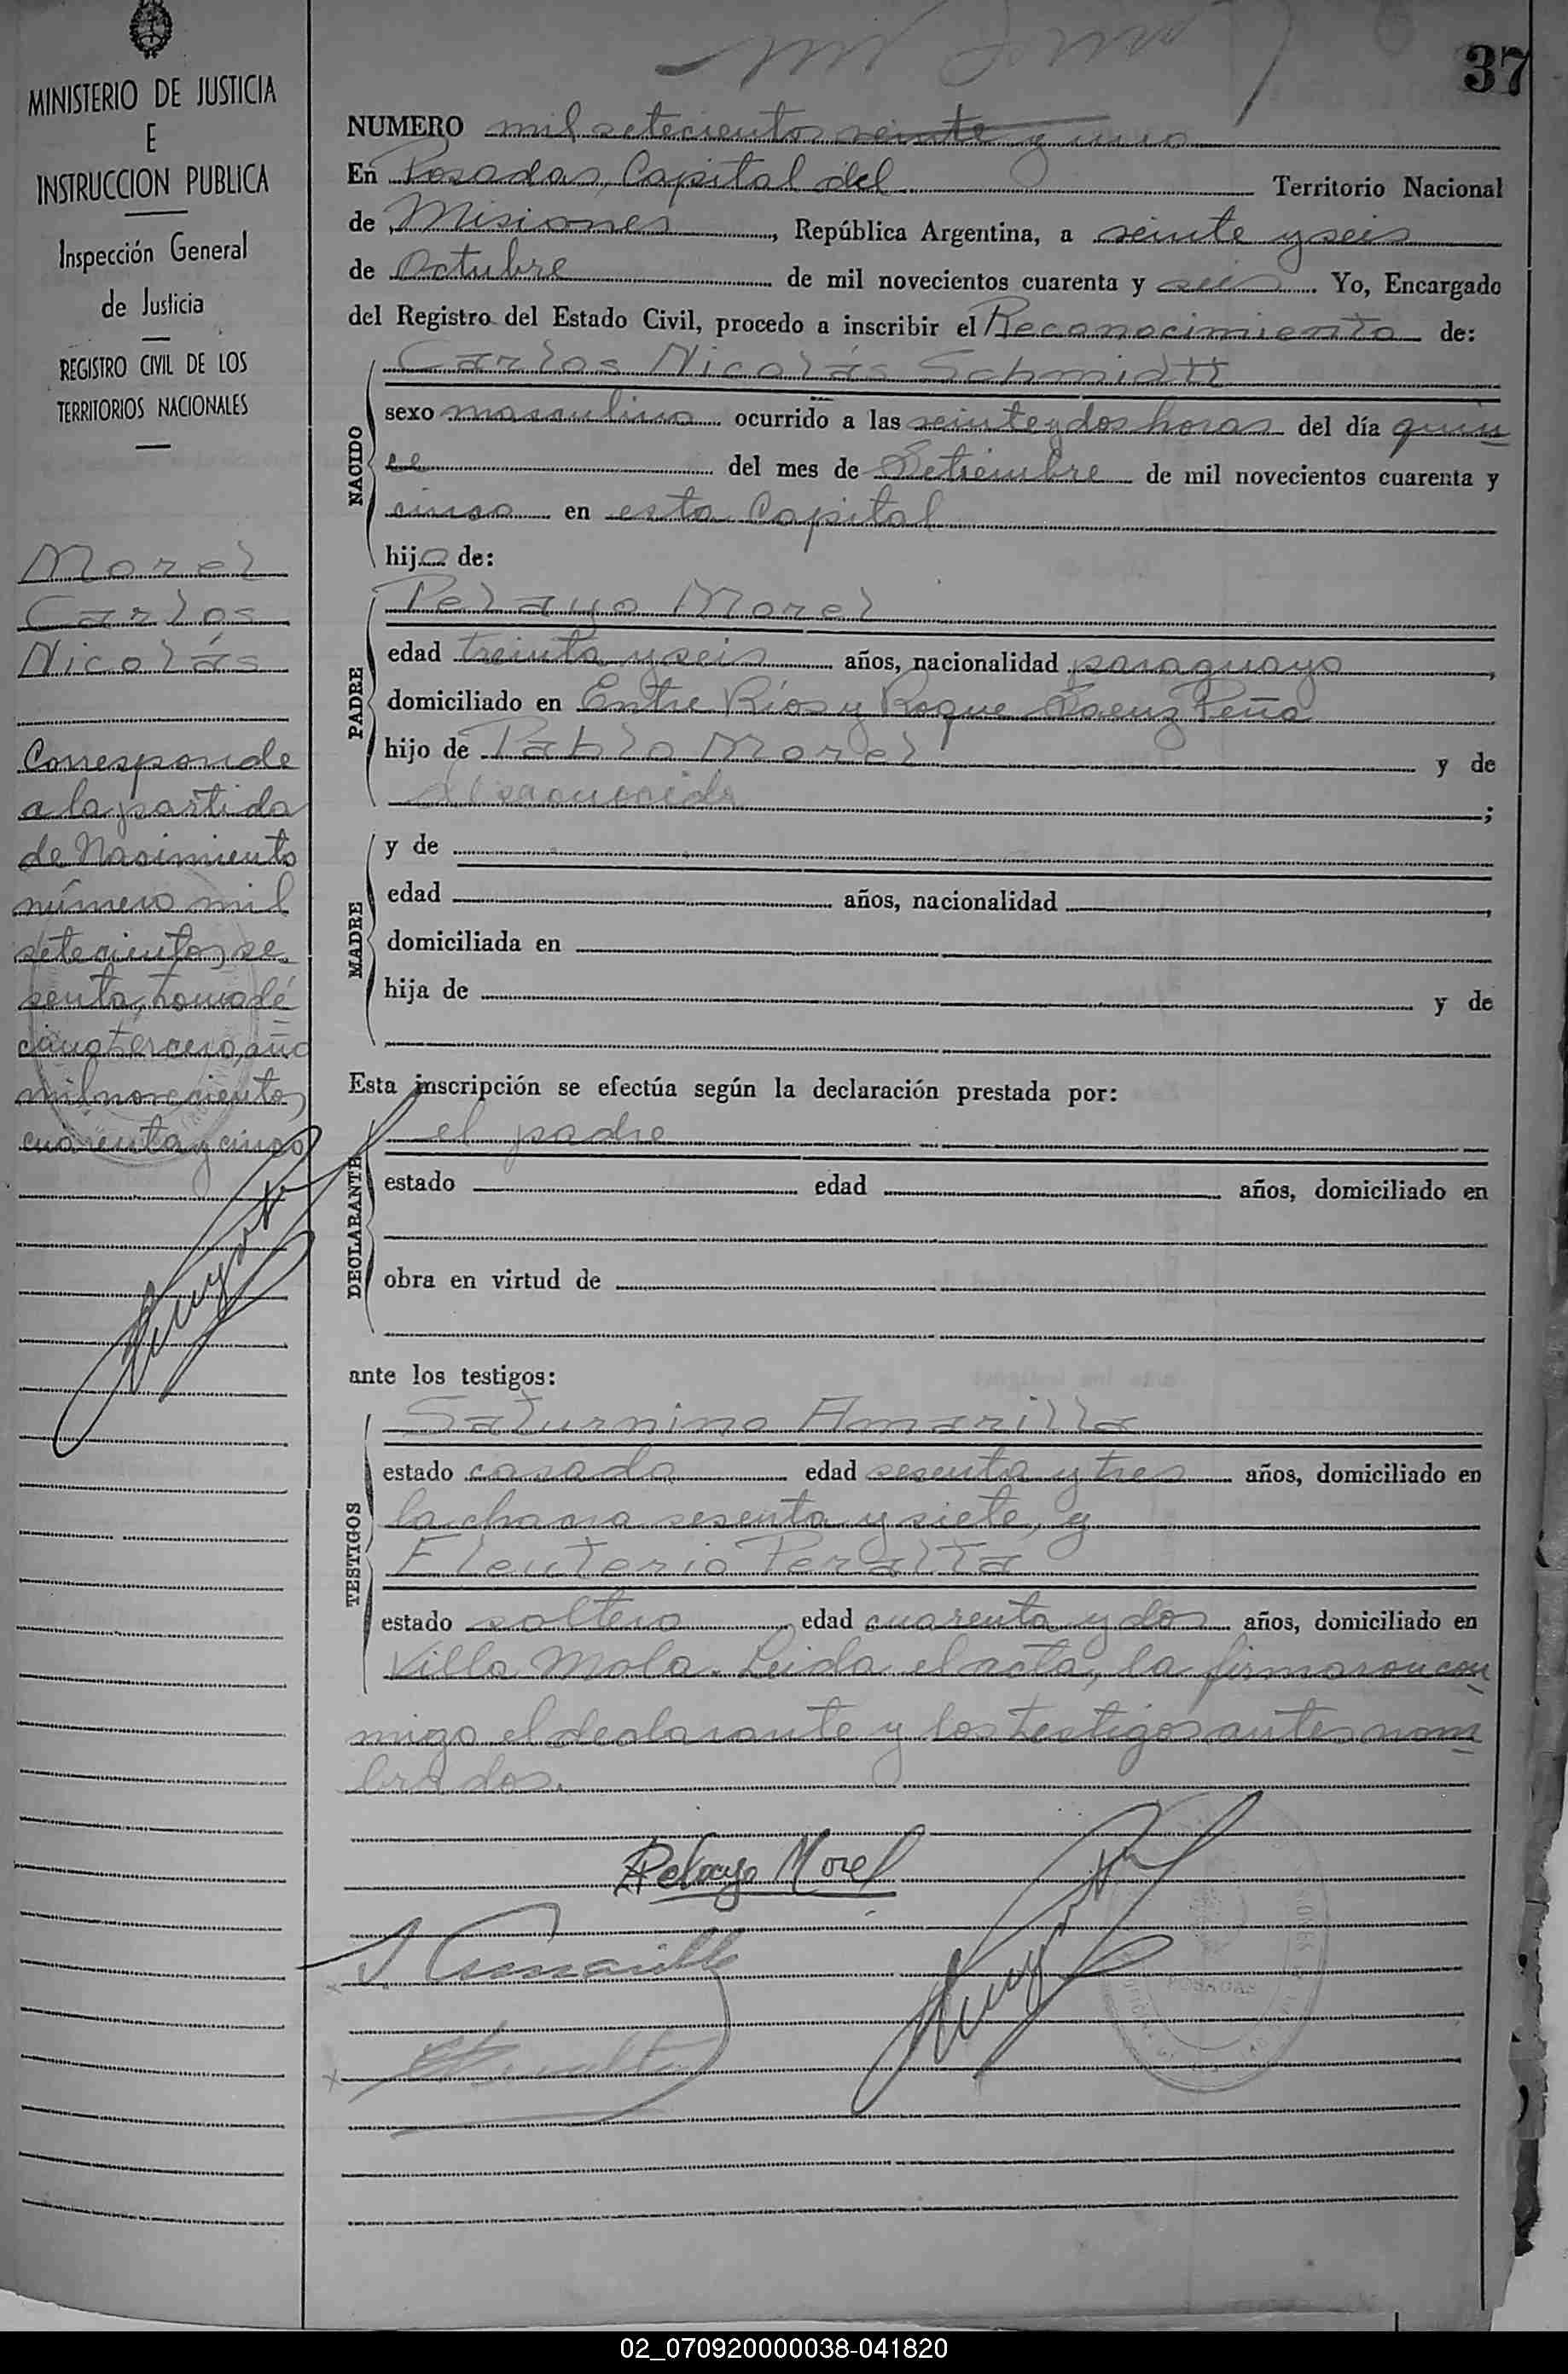 37
MINISTERIO DE JUSTICIA
E
INSTRUCCION PUBLICA
Inspección General
de Justicia
REGISTRO CIVIL DE LOS
TERRITORIOS NACIONALES
Morel
Carlos
Nicolás
Corresponde
a la partida
de Nacimiento
número mil
setecientos se
senta, tomo dé
cimo tercero, año
mil novecientos
cuarenta y cinco
NUMERO mil setecientos veinte y uno
En Posadas, Capital del Territorio Nacional
de Misiones, República Argentina, a veinte y seis
de Octubre de mil novecientos cuarenta y seis. Yo, Encargado
del Registro del Estado Civil, procedo a inscribir el Reconocimiento de:
NACIDO
Carlos Nicolás Schmidtt
sexo masculino ocurrido a las veinte y dos horas del día quin
ce del mes de Setiembre de mil novecientos cuarenta y
cinco en esta Capital
hijo de:
PADRE
Pelayo Morel
edad treinta y seis años, nacionalidad paraguaya,
domiciliado en Entre Ríos y Roque Saenz Peña
hijo de Pablo Morel y de
desconocida;
MADRE
y de
edad años, nacionalidad,
domiciliada en
hija de y de
Esta inscripción se efectúa según la declaración prestada por:
DECLARANTE
el padre
estado edad años, domiciliado en
obra en virtud de
ante los testigos:
TESTIGOS
Saturnino Amarilla
estado casado edad sesenta y tres años, domiciliado en
la chacra sesenta y siete, y
Eleuterio Peralta
estado soltero, edad cuarenta y dos años, domiciliado en
Villa Mola. Leida el acta, la firmaron con
migo el declarante y los testigos antes nom
brados.
Pelayo Morel
S Amarilla
E Peralta
POSADAS
02_070920000038-041820